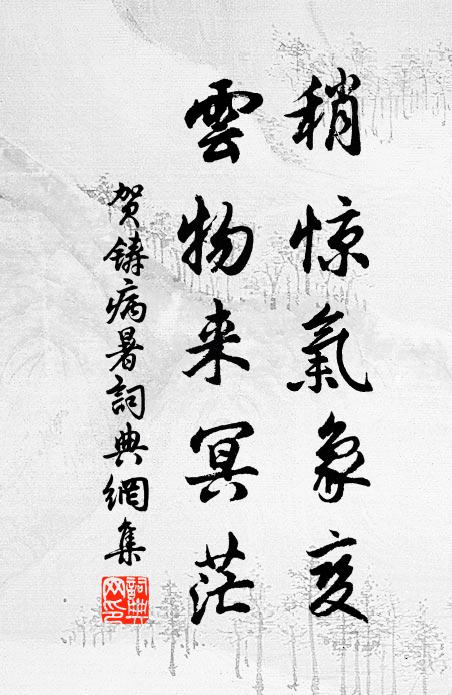 稍惊氣象变
雲物来冥茫
贺铸病暑詞典網集
詞典網印